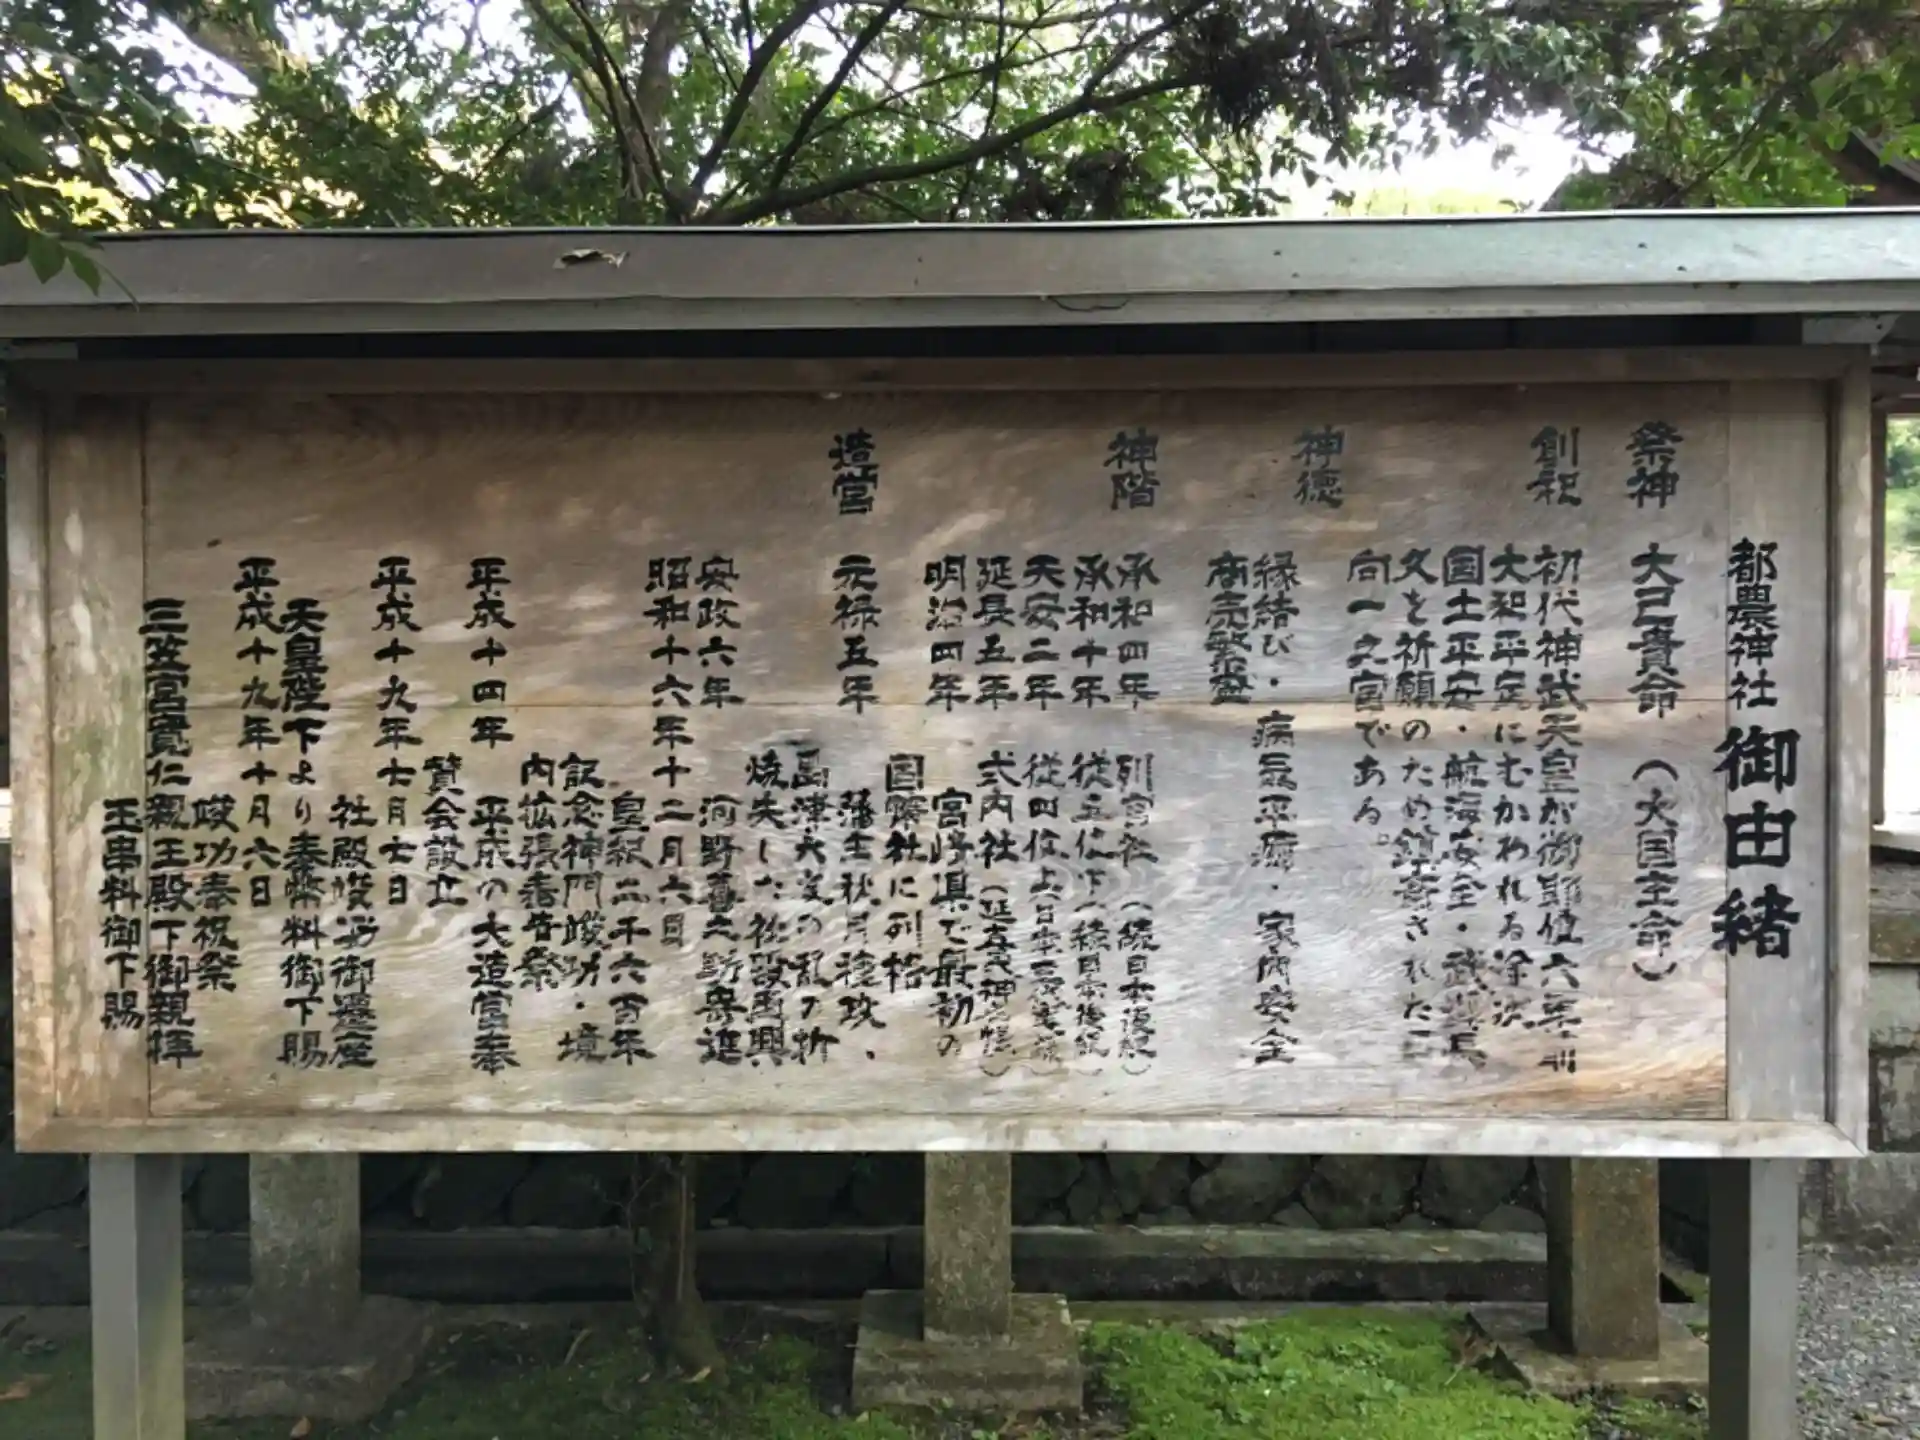 都農神社 御由緒
祭神
大己貴命 (大国主命)
創祀
初代神武天皇が御即位六年前
大和平定にむかわれる途次
国土平安・航海安全・武運長
久を祈願のため鎮斎された日
向一之宮である。
神徳
縁結び・病気平癒・家内安全
商売繁盛
神階
承和四年 列官社 (続日本後紀)
承和十年 従五位下 (続日本後紀)
天安二年 従四位上 (日本三代実録)
延長五年 式内社 (延喜式神名帳)
明治四年 宮崎県で最初の
国弊社に列格
造営
元禄五年 藩主秋月種政、
島津大友の乱の折
焼失した社殿再興
安政六年 河野
昭和十六年十二月六日
皇紀二千六百年
記念神門竣功・境
内拡張奉告祭
平成十四年 平成の大造営奉
賛会設立
平成十九年七月七日
社殿竣功御遷座
天皇陛下より奉幣料御下賜
平成十九年十月六日
竣功奉祝祭
三笠宮寛仁親王殿下御親拝
玉串料御下賜